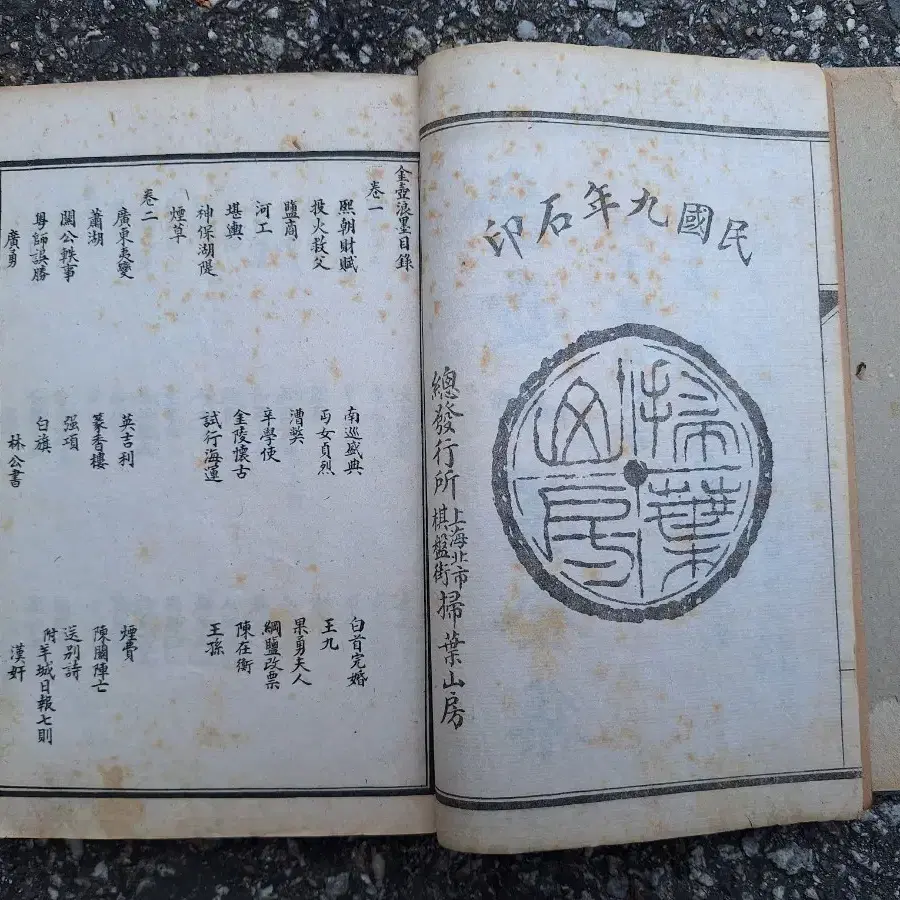 民國九年石印
掃葉山房
總發行所 上海北市棋盤街 掃葉山房
金壺浪墨目錄
卷一
熙朝財賦 南巡盛典 白首完婚
投火救父 丐女貞烈 王九
鹽商 漕弊 果勇夫人
河工 辛學使 綱鹽改票
堪輿 金陵懷古 陳在衡
神保湖隄 試行海運 王孫
煙草
卷二
廣東夷變 英吉利 煙費
蕭湖 篆香樓 陳關陣亡
關公軼事 强項 送別詩
粵師誤勝 白旗 附羊城日報七則
廣勇 林公書 漢奸